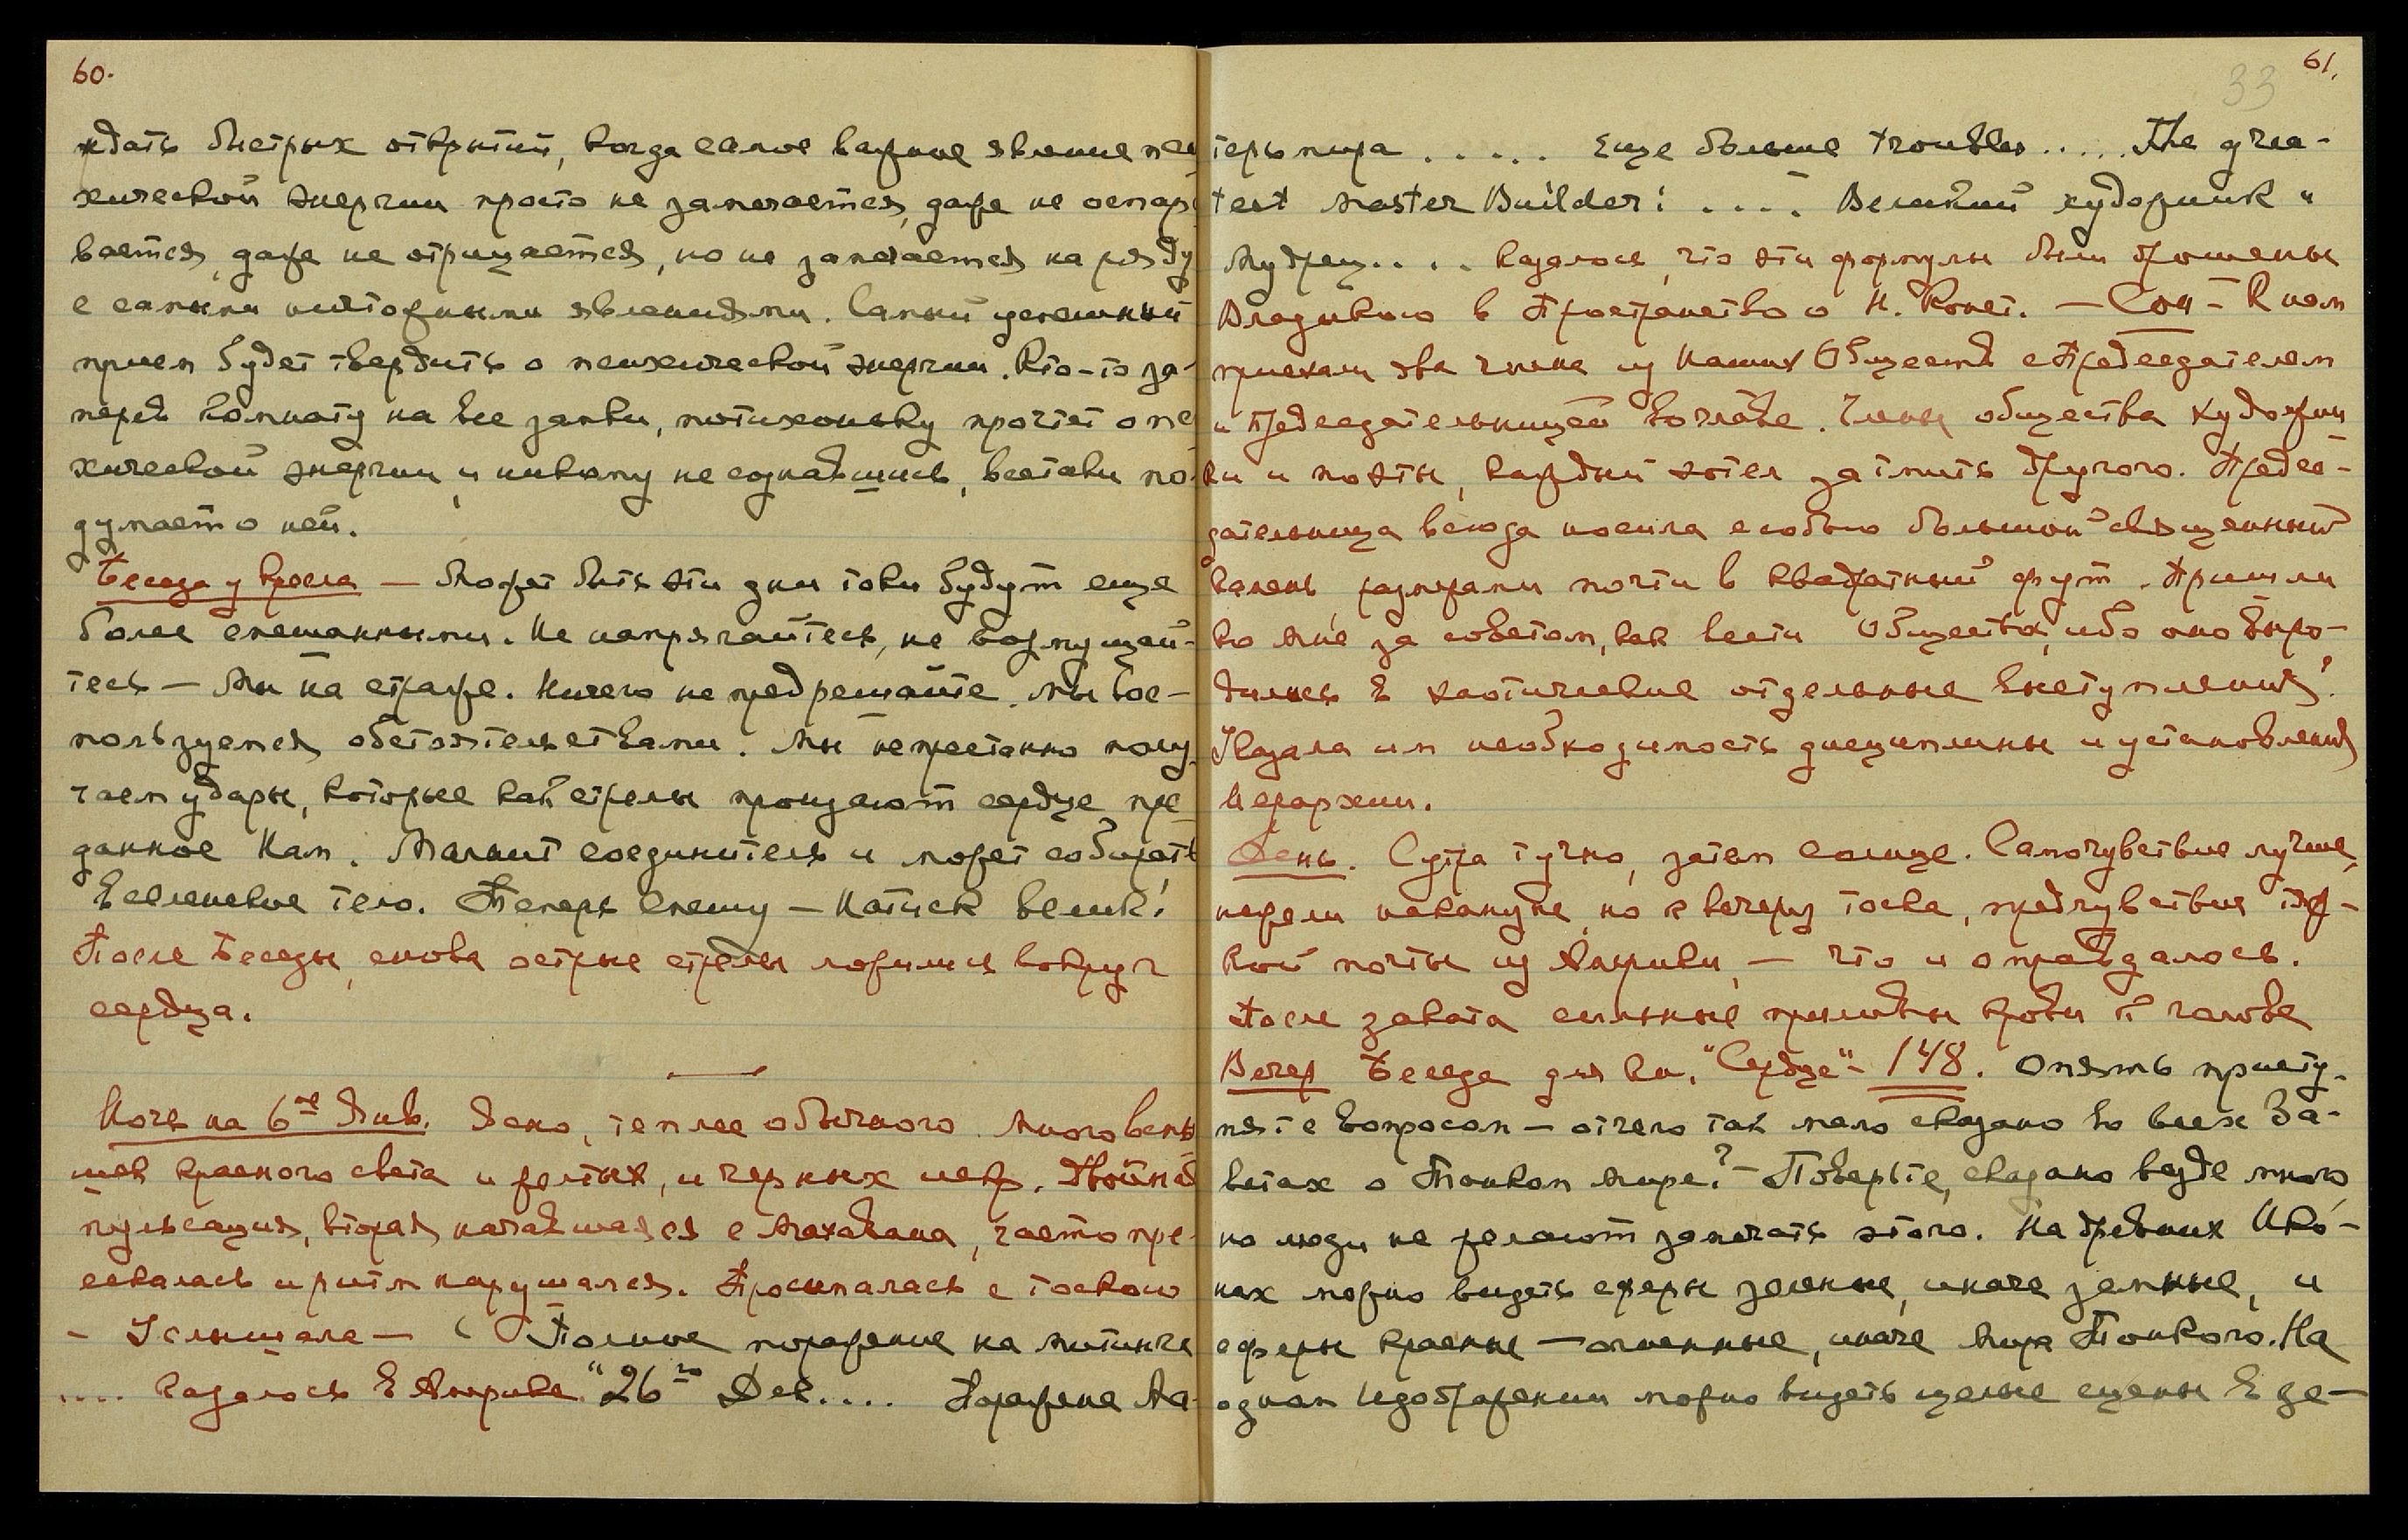 60.
ждать быстрых открытий, когда самое важное явление пси
хической энергии просто не замечается, даже не оспари
вается, даже не отрицается, но не замечается на ряду
с самыми ничтожными явлениями. Самый успешный
прием будет твердить о психической энергии. Кто-то за-
перев комнату на все замки, потихоньку прочтет о пси
хической энергии и никому не сознавшись, всетаки по-
думает о ней.
Беседа у кресла — Может быть эти дни токи будут еще
более смешанными. Не напрягайтесь, не возмущай-
тесь — Мы на страже. Ничего не предрешайте. Мы вос-
пользуемся обстоятельствами. Мы непрестанно полу-
чаем удары, которые как стрелы пронзают сердце пре-
данное Нам. Магнит соединитель и может собирать
вселенское тело. Теперь спешу — Натиск велик!
После Беседы, снова острые стрелы ложились вокруг
сердца.
Ночь на 6ое Янв. Ясно, теплее обычного. Много вспы
шек красного света и желтых, и черных искр. Двойная
пульсация, вторая начавшаяся с Махавана, часто пре-
секалась и ритм нарушался. Просыпалась с тоскою
- Услышала — ( Полное поражение на митинге
.... казалось в Америке "26го Дек.... Поражена Ма-
61.
33
терь мира ..... Еще больше troubles ..... The grea-
test Master Builder! .... Великий художник и
Мудрец.... Казалось, что эти формулы были брошены
Владыкою в Пространство о Н. Конст. — Сон - К нам
приехали два члена из Наших Обществ с Председателем
и председательницей во главе. Члены общества художни
ки и поэты, каждый хотел затмить другого. Предсе-
дательница всюда носила с собою большой священный
камень, размерами почти в квадратный фут. Пришли
ко мне за советом, как вести Общества, ибо оно выро-
дилось в хаотические отдельные выступления!
Указала им необходимость дисциплины и установления
Иерархии.
День. С утра тучно, затем солнце. Самочувствие лучше,
нежели накануне, но к вечеру тоска, предчувствие тяж-
кой почты из Америки, — что и оправдалось.
После заката сильные приливы крови к голове
Вечер Беседа для кн. "Сердце" - 148. Опять присту-
пят с вопросом — отчего так мало сказано во всех За-
ветах о Тонком Мире? — Поверьте, сказано везде много,
но люди не желают замечать этого. На древних Ико-
нах можно видеть сферы зеленые, иначе земные, и
сферы красные — огненные, иначе Мира Тонкого. На
одном Изображении можно видеть целые сцены в зе-